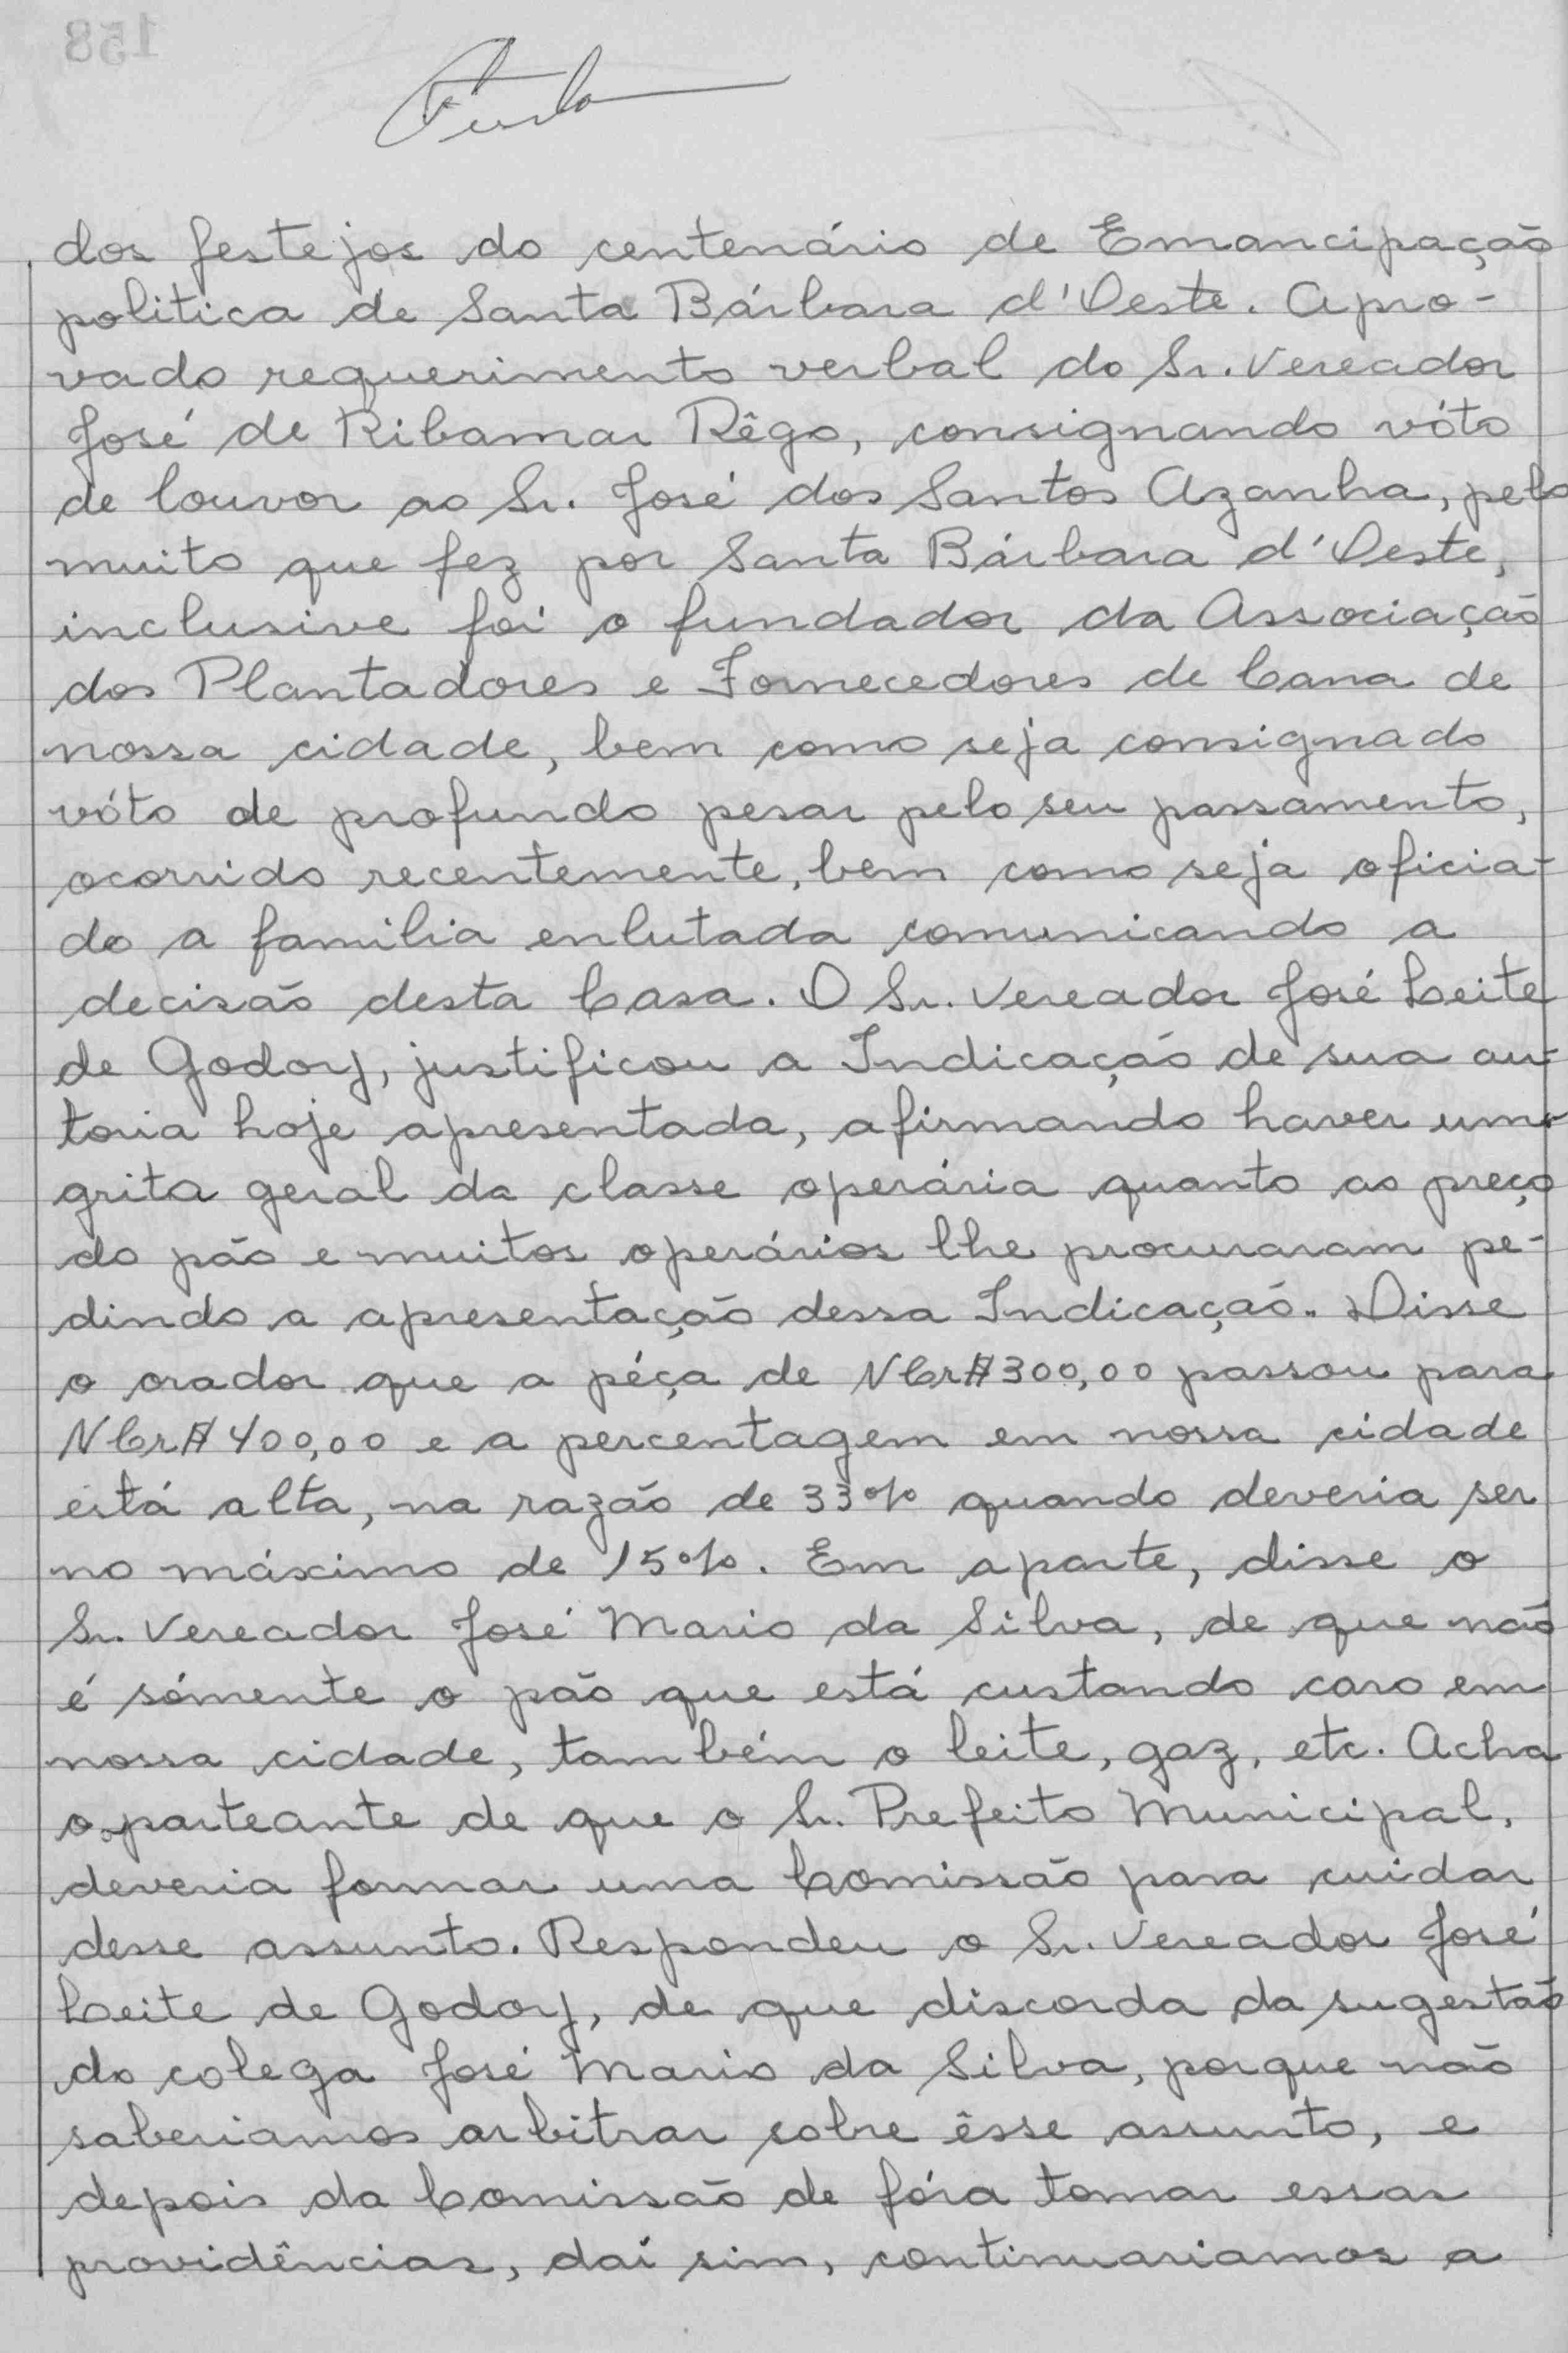 dos festejos do centenário de Emancipação
politica de Santa Bárbara d'Oeste. Apro-
vado requerimento verbal do Sr. Vereador
José de Ribamar Rêgo, consignando vóto
de louvor ao Sr. José dos Santos Azanha, pelo
muito que fez por Santa Bárbara d'Oeste,
inclusive foi o fundador da Associação
dos Plantadores e Fornecedores de Cana de
nossa cidade, bem como seja consignado
vóto de profundo pesar pelo seu passamento,
ocorrido recentemente, bem como seja oficia-
do a familia enlutada comunicando a
decisão desta Casa. O Sr. Vereador José Leite
de Godoy, justificou a Indicação de sua au-
toria hoje apresentada, afirmando haver uma
grita geral da classe operária quanto ao preço
do pão e muitos operários lhe procuraram pe-
dindo a apresentação dessa Indicação. Disse
o orador que a péça de NCr$300,00 passou para
NCr$400,00 e a percentagem em nossa cidade
está alta, na razão de 33% quando deveria ser
no máximo de 15%. Em aparte, disse o
Sr. Vereador José Mario da Silva, de que não
é sómente o pão que está custando caro em
nossa cidade, também o leite, gaz, etc. Acha
o aparteante de que o Sr. Prefeito Municipal,
deveria formar uma Comissão para cuidar
desse assunto. Respondeu o Sr. Vereador José
Leite de Godoy, de que discorda da sugestão
do colega José Mario da Silva, porque não
saberiamos arbitrar sobre êsse assunto, e
depois da Comissão de fóra tomar essas
providências, daí sim, continuariamos a